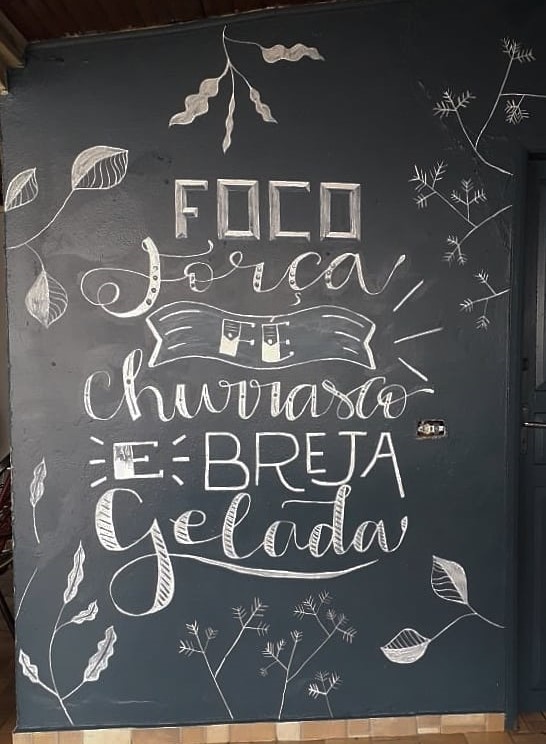 FOCO
Força
FÉ
churrasco
E BREJA
Gelada